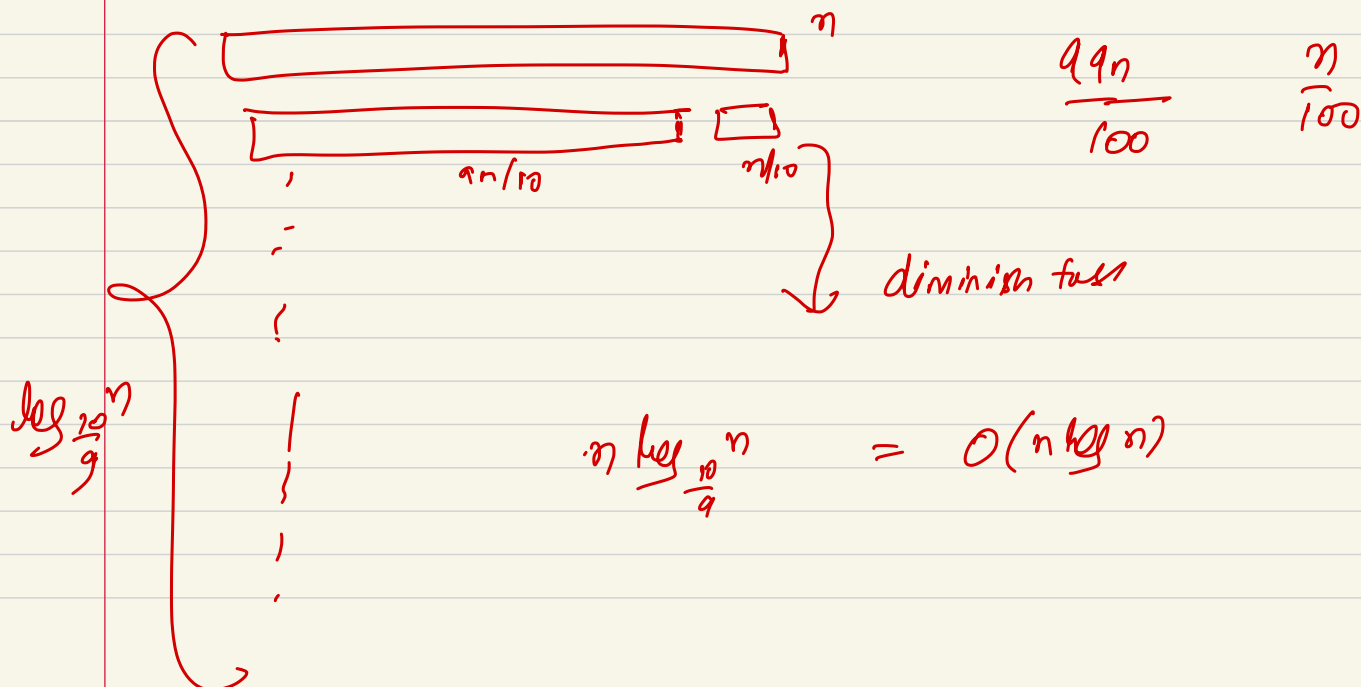 n
99n/100 n/100
9n/10 n/10
diminish fast
log 10/9 n
n log 10/9 n = O(n log n)